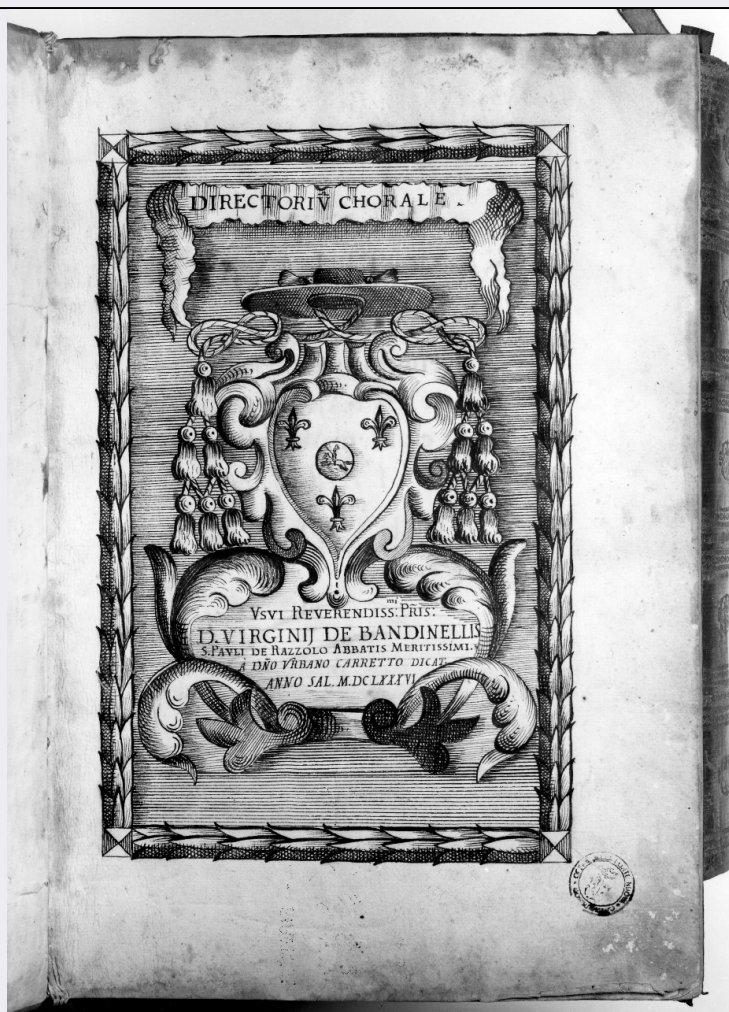 DIRECTORIV̄ CHORALE.
VSVI REVERENDISS:mi P̄RIS:
D. VIRGINIJ DE BANDINELLIS
S. PAVLI DE RAZZOLO ABBATIS MERITISSIMI.
A DÑO VRBANO CARRETTO DICAT.
ANNO SAL. M.DCLXXXVI